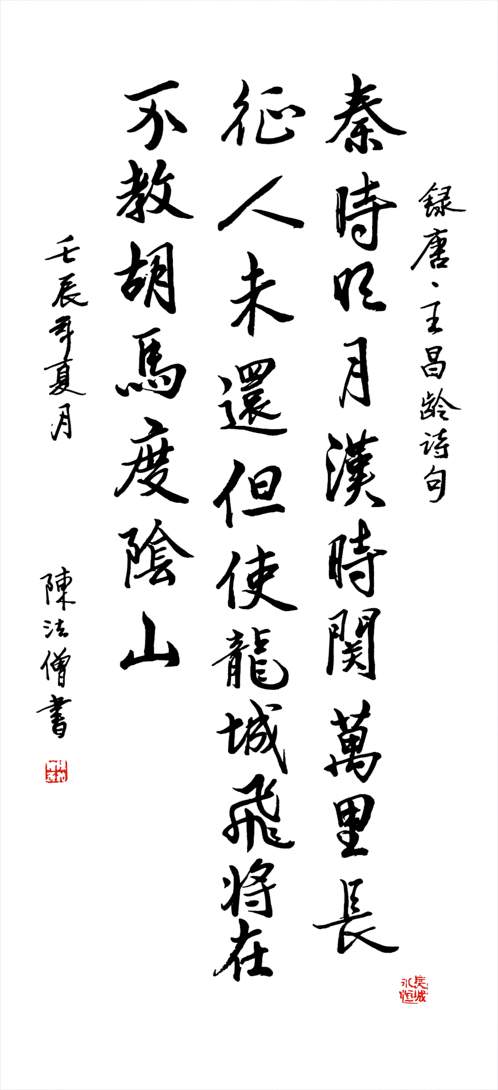 録唐·王昌龄诗句
秦時明月漢時関萬里長
征人未還但使龍城飛将在
不教胡馬度陰山
壬辰年夏月
陳法僧書
長城永恒